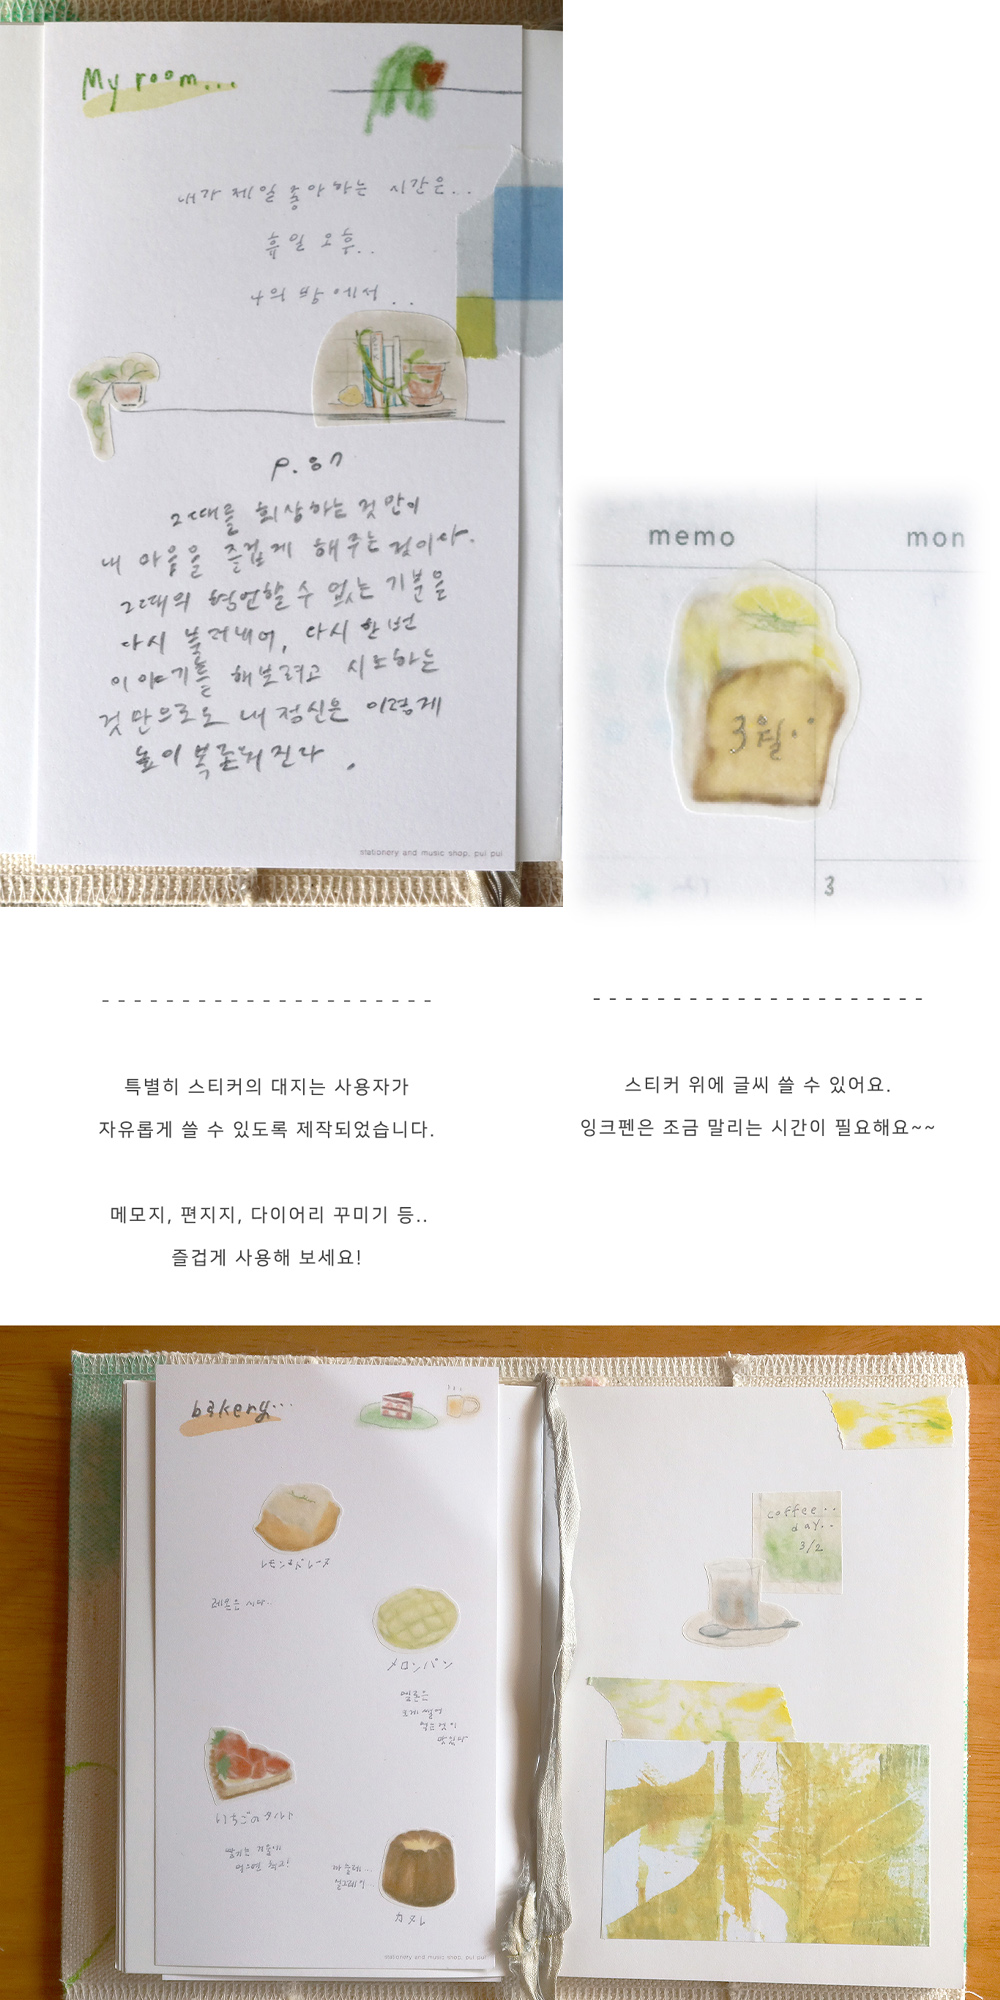 My room...
내가 제일 좋아하는 시간은..
휴일 오후..
나의 방에서..
p. 87
그때를 회상하는 것만이
내 마음을 즐겁게 해주는 것이다.
그때의 형언할 수 없는 기분을
다시 불러내어, 다시 한번
이야기를 해보려고 시도하는
것만으로도 내 정신은 이렇게
높이 북돋워진다.
stationery and music shop, pul pul
memo
mon
3월..
3
특별히 스티커의 대지는 사용자가
자유롭게 쓸 수 있도록 제작되었습니다.
메모지, 편지지, 다이어리 꾸미기 등..
즐겁게 사용해 보세요!
스티커 위에 글씨 쓸 수 있어요.
잉크펜은 조금 말리는 시간이 필요해요~~
bakery...
레몬은 시다..
メロンパン
멜론은
크게 썰어
먹는것이
맛있다
いちごのタルト
딸기는 겨울에
먹으면 최고!
까눌레...
カヌレ
stationery and music shop, pul pul
coffee..
day..
3/2